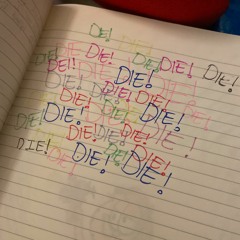 DIE!
DIE! DIE! DIE! DIE! DIE!
DEI! DIE!
DIE! DIE! DIE!
DIE! DIE! DIE!
DIE! DIE! DIE!
DIE! DIE! DIE!
DIE! DIE! DIE! DIE!
DIE! DIE!